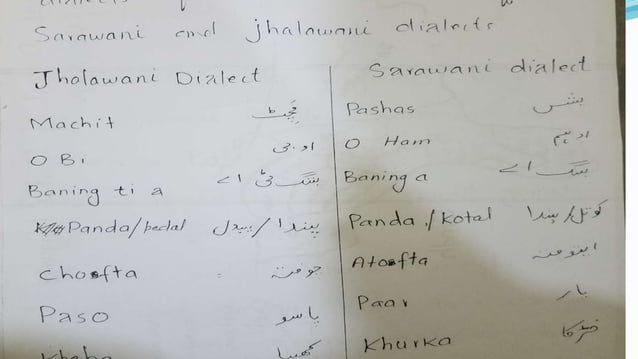 Sarawani and jhalawani dialects
Jholawani Dialect
Sarawani dialect
Machit مچٹ
Pashas بشس
O Bi او بی
O Ham او ہم
Baning ti a بننگ ٹی اے
Baning a بننگ اے
Panda/pedal پیندا/پیدل
Panda /kotal کوتل/پندا
Choofta
Atoofta
Paso پاسو
Paar پار
Khurka